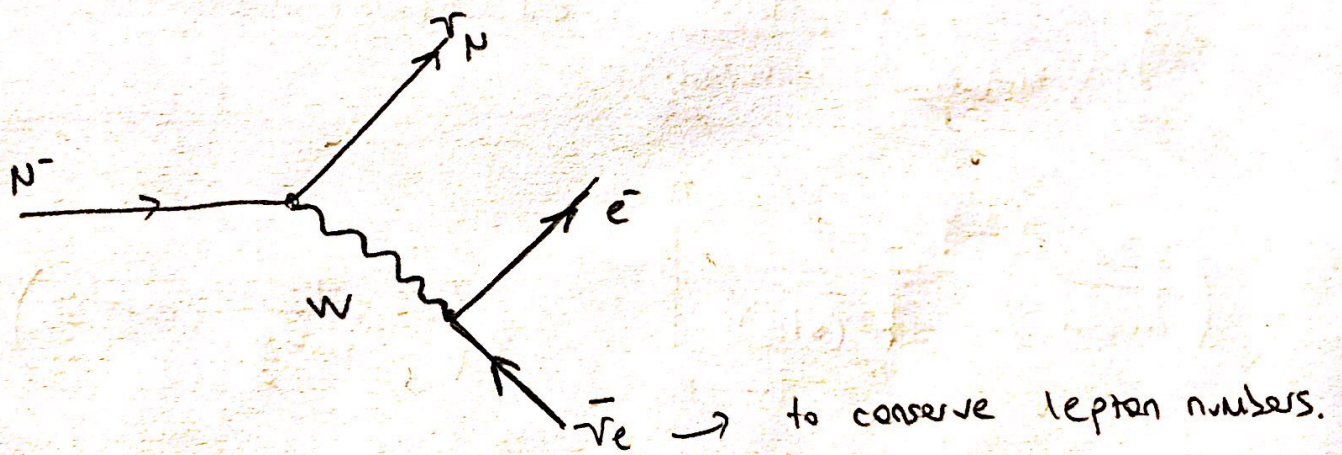 ν_μ
μ⁻
e⁻
W
ν̄_e → to conserve lepton numbers.